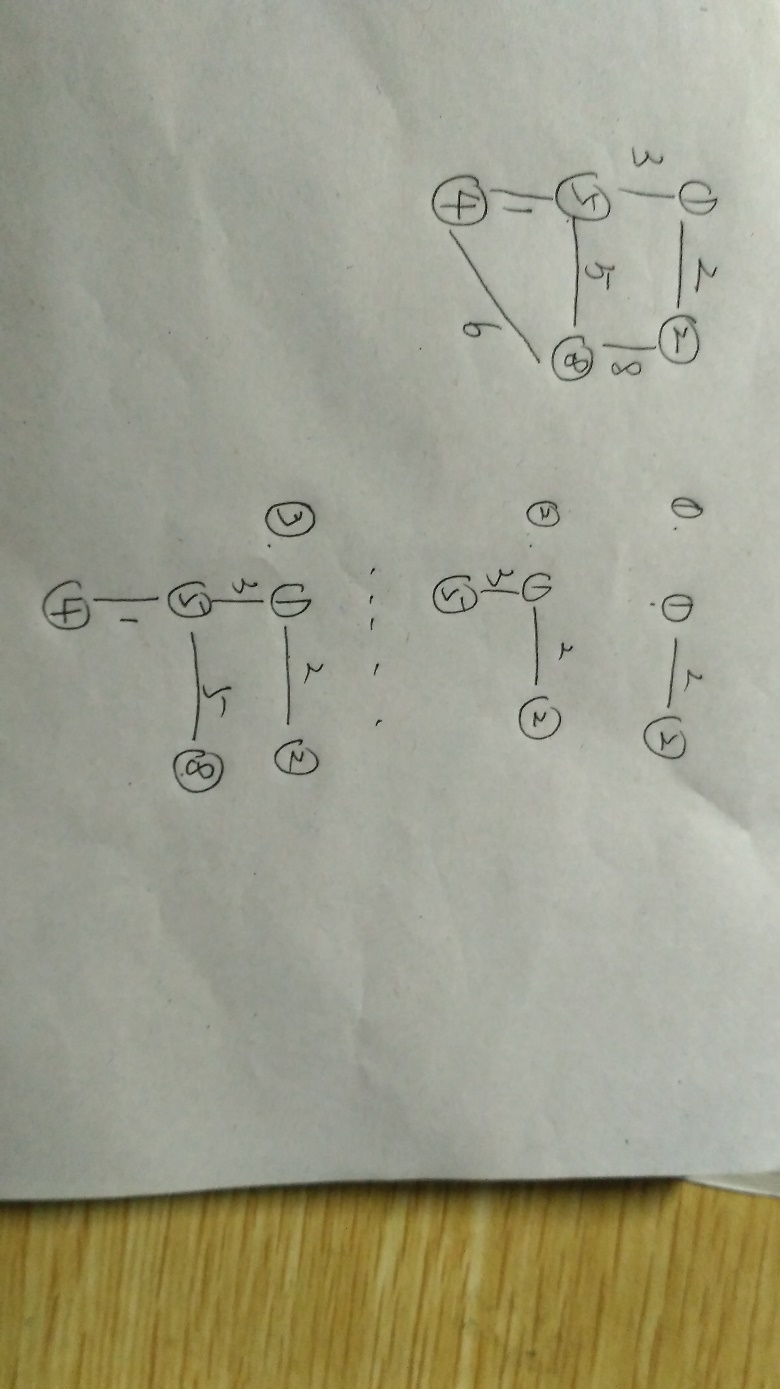 ① 2 ②
3 8
⑤ 5 ⑧
1
④ 6
①. ① 2 ②
②. ① 2 ②
3
⑤
.....
③. ① 2 ②
3
⑤ 5 ⑧
1
④